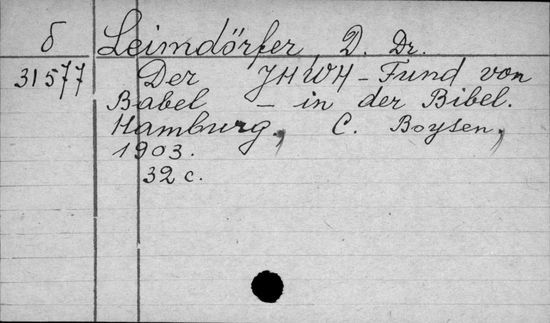 б Leimdörfer, D. Dr.
31577 Der JHWH - Fund von
Babel - in der Bibel.
Hamburg, C. Boysen,
1903.
32 c.